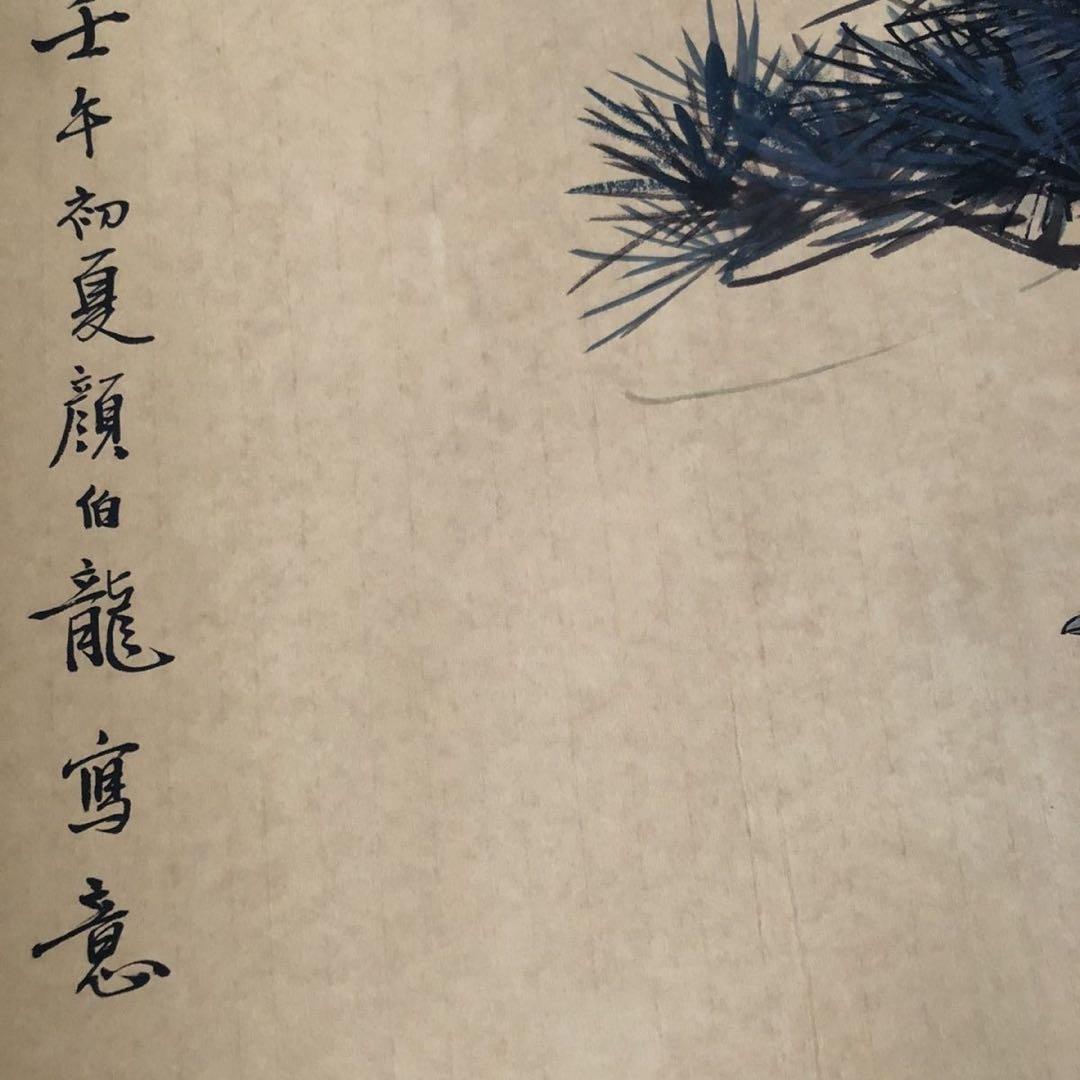 壬午初夏顔伯龍寫意